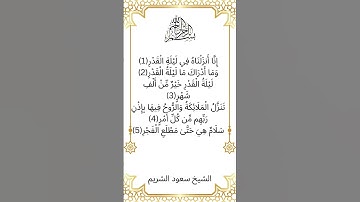 بسم الله الرحمن الرحيم
إِنَّا أَنزَلْنَاهُ فِي لَيْلَةِ الْقَدْرِ(1)
وَمَا أَدْرَاكَ مَا لَيْلَةُ الْقَدْرِ(2)
لَيْلَةُ الْقَدْرِ خَيْرٌ مِّنْ أَلْفِ
شَهْرٍ(3)
تَنَزَّلُ الْمَلَائِكَةُ وَالرُّوحُ فِيهَا بِإِذْنِ
رَبِّهِم مِّن كُلِّ أَمْرٍ(4)
سَلَامٌ هِيَ حَتَّىٰ مَطْلَعِ الْفَجْرِ(5)
الشيخ سعود الشريم